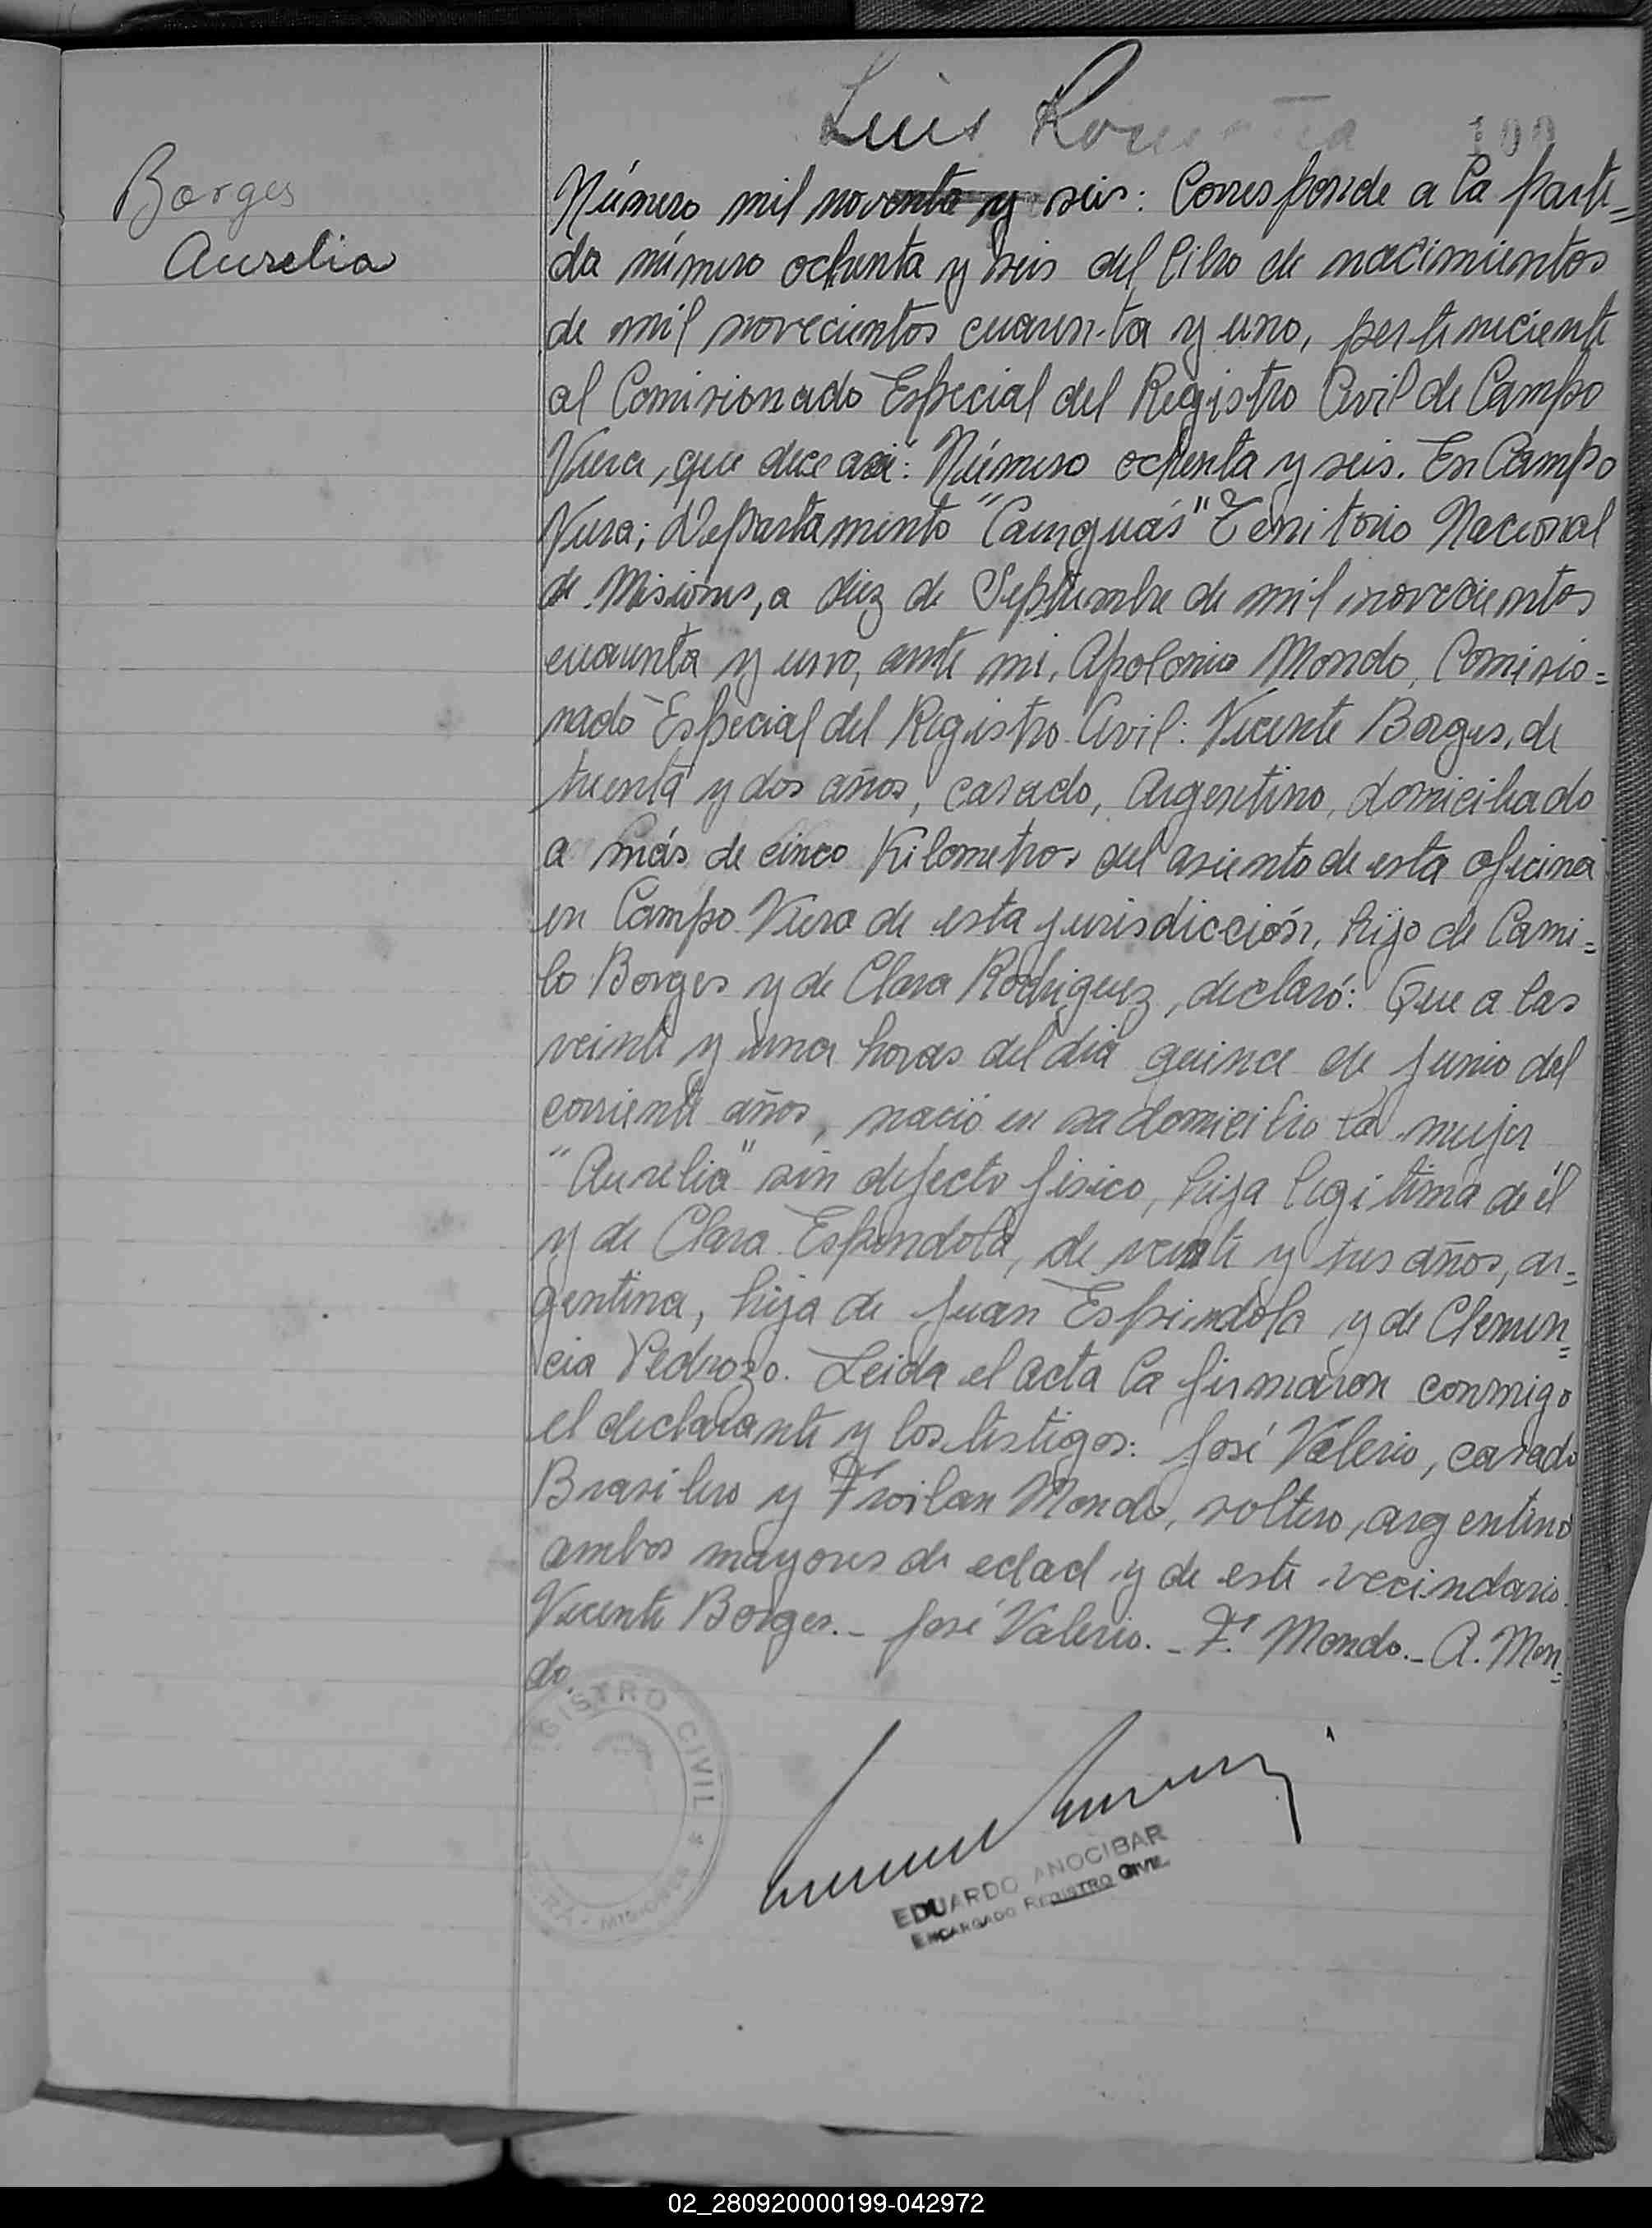 Luis
100
Borges
Aurelia
Número mil noventa y seis: Corresponde a la parti=
da número ochenta y seis del libro de nacimientos
de mil novecientos cuarenta y uno, perteneciente
al Comisionado Especial del Registro Civil de Campo
Viera, que dice así: Número ochenta y seis. En Campo
Viera; Departamento "Cainguás" Territorio Nacional
de Misiones, a diez de Septiembre de mil novecientos
cuarenta y uno, ante mi, Apolonio Mondo, Comisio=
nado Especial del Registro Civil: Vicente Borges, de
treinta y dos años, casado, Argentino, domiciliado
a más de cinco Kilometros del asiento de esta oficina
en Campo Viera de esta jurisdicción, hijo de Cami=
lo Borges y de Clara Rodriguez, declaró: Que a las
veinte y una horas del dia quince de Junio del
corriente años, nació en su domicilio la mujer
"Aurelia" sin defecto fisico, hija legitima de él
y de Clara Espindola, de veinte y tres años, ar=
gentina, hija de Juan Espiindola y de Clemen=
cia Pedrozo. Leida el acta la firmaron conmigo
el declarante y los testigos: José Valerio, casado
Brasilero y Froilan Mondo, soltero, argentino
ambos mayores de edad y de este vecindario.
Vicente Borges.- José Valerio.- F. Mondo.- A. Mon=
do.
GISTRO CIVIL * MISIONES
EDUARDO ANOCIBAR
ENCARGADO REGISTRO CIVIL
02_280920000199-042972